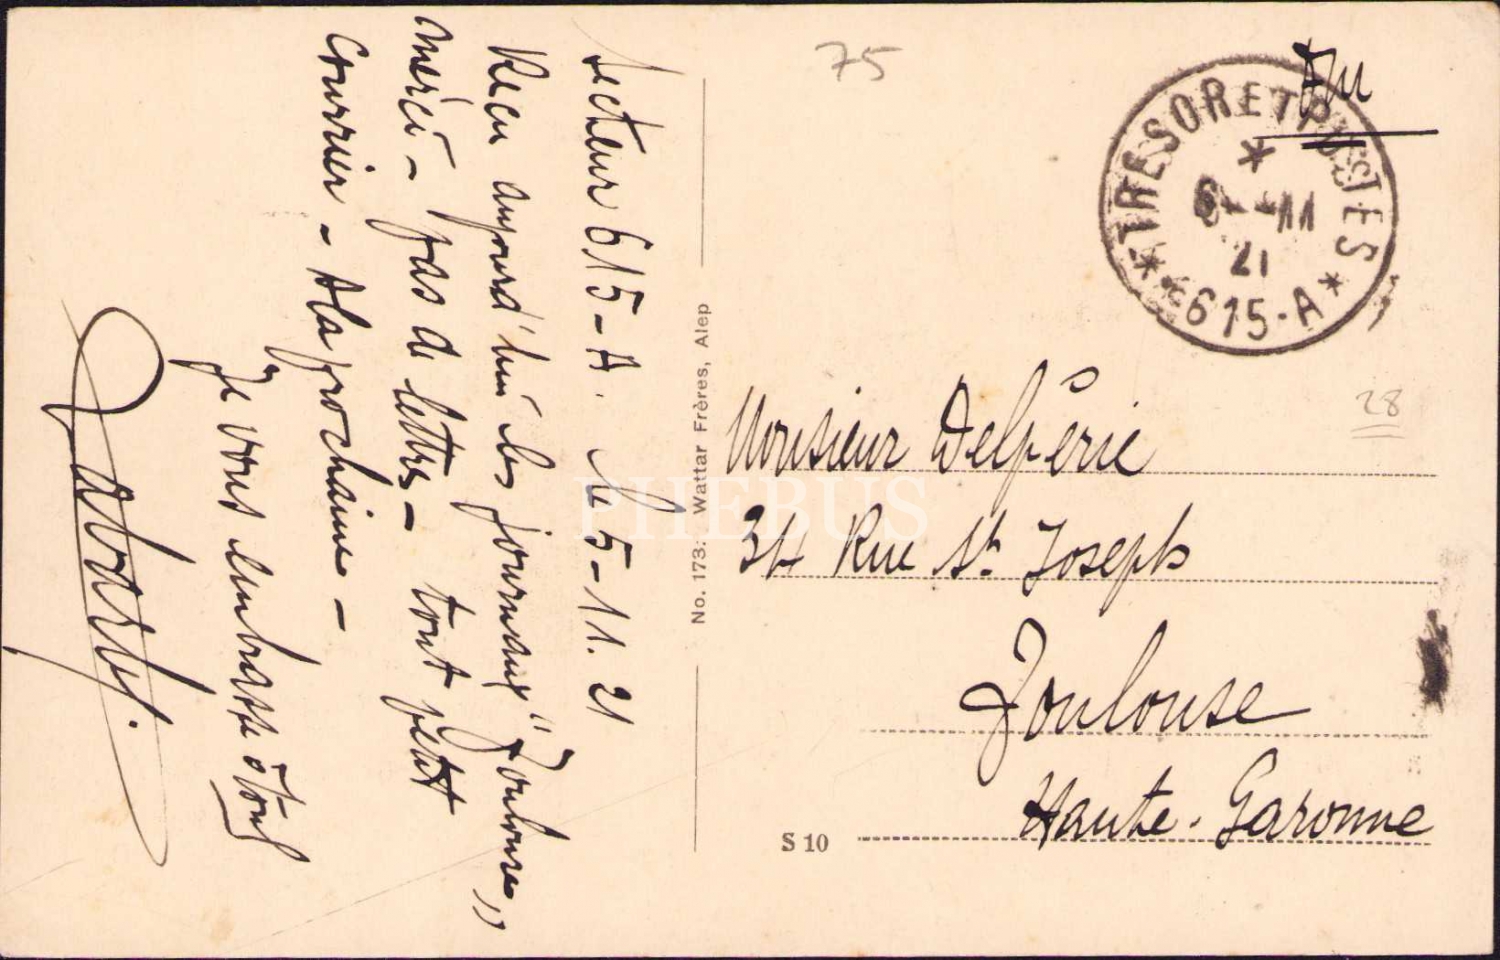 Secteur 615-A. le 5-11.21
Recu aujourd'hui les journaux "Toulouse"
merci - pas de lettre - tout petit
courrier - A la prochaine -
Je vous embrasse tous
No. 173: Wattar Frères, Alep
75
Fm
TRESOR ET POSTES
6 - 11
21
615-A
28
Monsieur Delpérié
34 Rue St Joseph
Toulouse
Haute-Garonne
S 10
PHEBUS